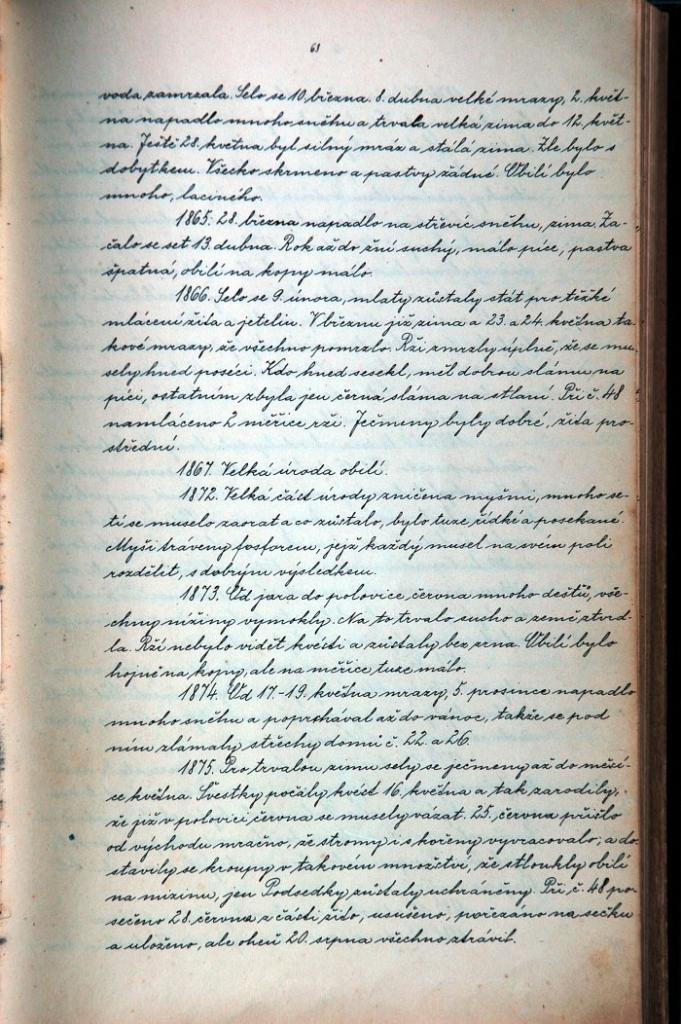 61
voda zamrzala. Selo se 10. března. 8. dubna velké mrazy, 2. květ-
na napadlo mnoho sněhu a trvala velká zima do 12. květ-
na. Ještě 28. května byl silný mráz a stálá zima. Zle bylo s
dobytkem. Všecko skrmeno a pastvy žádné. Obilí bylo
mnoho, laciného.
1865: 28. března napadlo na střevíc sněhu, zima. Za-
čalo se set 13. dubna. Rok až do žní suchý, málo píce, pastva
špatná, obilí na kopy málo.
1866. Selo se 9. února, mlaty zůstaly stát pro těžké
mlácení žita a jetelin. V březnu již zima a 23. a 24. května ta-
kové mrazy, že všechno pomrzlo. Rži zmrzly úplně, že se mu-
sely hned poséci. Kdo hned sesekl, měl dobrou slámu na
píci, ostatním zbyla jen černá sláma na stlaní. Při č. 48
namláceno 2 měřice rži. Ječmeny byly dobré, žita pro-
střední.
1867. Velká úroda obilí.
1872. Velká část úrody zničena myšmi, mnoho se-
tí se muselo zaorat a co zůstalo, bylo tuze řídké a posekané.
Myši tráveny fosforem, jejž každý musel na svém poli
rozdělit, s dobrým výsledkem.
1873. Od jara do polovice června mnoho dešťů, vše-
chny nížiny vymokly. Na to trvalo sucho a země ztvrd-
la. Rží nebylo vidět kvésti a zůstaly bez zrna. Obilí bylo
hojně na kopy, ale na měřice tuze málo.
1874. Od 17.-19. května mrazy, 5. prosince napadlo
mnoho sněhu a poprchával až do vánoc, takže se pod
ním zlámaly střechy domů č. 22. a 26.
1875. Pro trvalou zimu sely se ječmeny až do měsí-
ce května. Švestky počaly kvést 16. května a tak zarodily,
že již v polovici června se musely vázat. 25. června přišlo
od východu mračno, že stromy i s kořeny vyvracovalo, a do-
stavily se kroupy v takovém množství, že stloukly obilí
na mizinu, jen Podsedky zůstaly uchráněny. Při č. 48 po-
sečeno 28. června z části žito, usušeno, pořezáno na sečku
a uloženo, ale oheň 20. srpna všechno ztrávil.